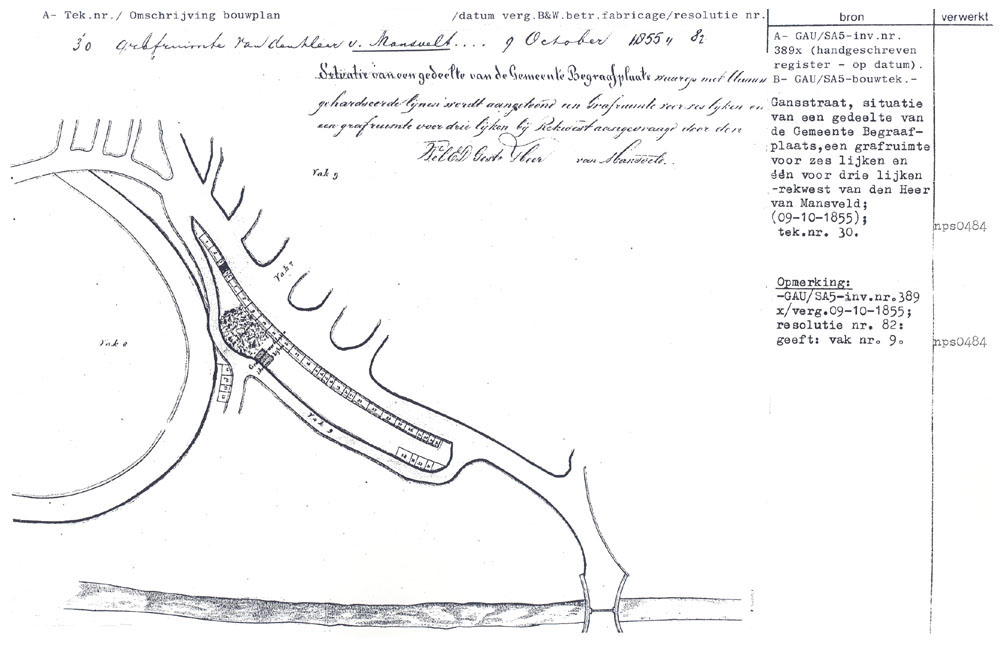 A- Tek.nr./ Omschrijving bouwplan /datum verg.B&W.betr.fabricage/resolutie nr.
30 Grafruimte van den Heer v. Mansvelt.... 9 October 1855 „ 82
Situatie van een gedeelte van de Gemeente Begraafplaats waarop met
gehardseerde lijnen wordt aangetoond een Grafruimte voor ses lijken en
een grafruimte voor drie lijken bij Rekwest aangevraagd door den
Wel Ed Gestr Heer van Mansveld.
Vak 9
Vak 7
Vak 8
Vak 9
bron
A- GAU/SA5-inv.nr.
389x (handgeschreven
register - op datum).
B- GAU/SA5-bouwtek.-
Gansstraat, situatie
van een gedeelte van
de Gemeente Begraaf-
plaats,een grafruimte
voor zes lijken en
één voor drie lijken
-rekwest van den Heer
van Mansveld;
(09-10-1855);
tek.nr. 30.
Opmerking:
-GAU/SA5-inv.nr.389
x/verg.09-10-1855;
resolutie nr. 82:
geeft: vak nr. 9.
verwerkt
nps0484
nps0484